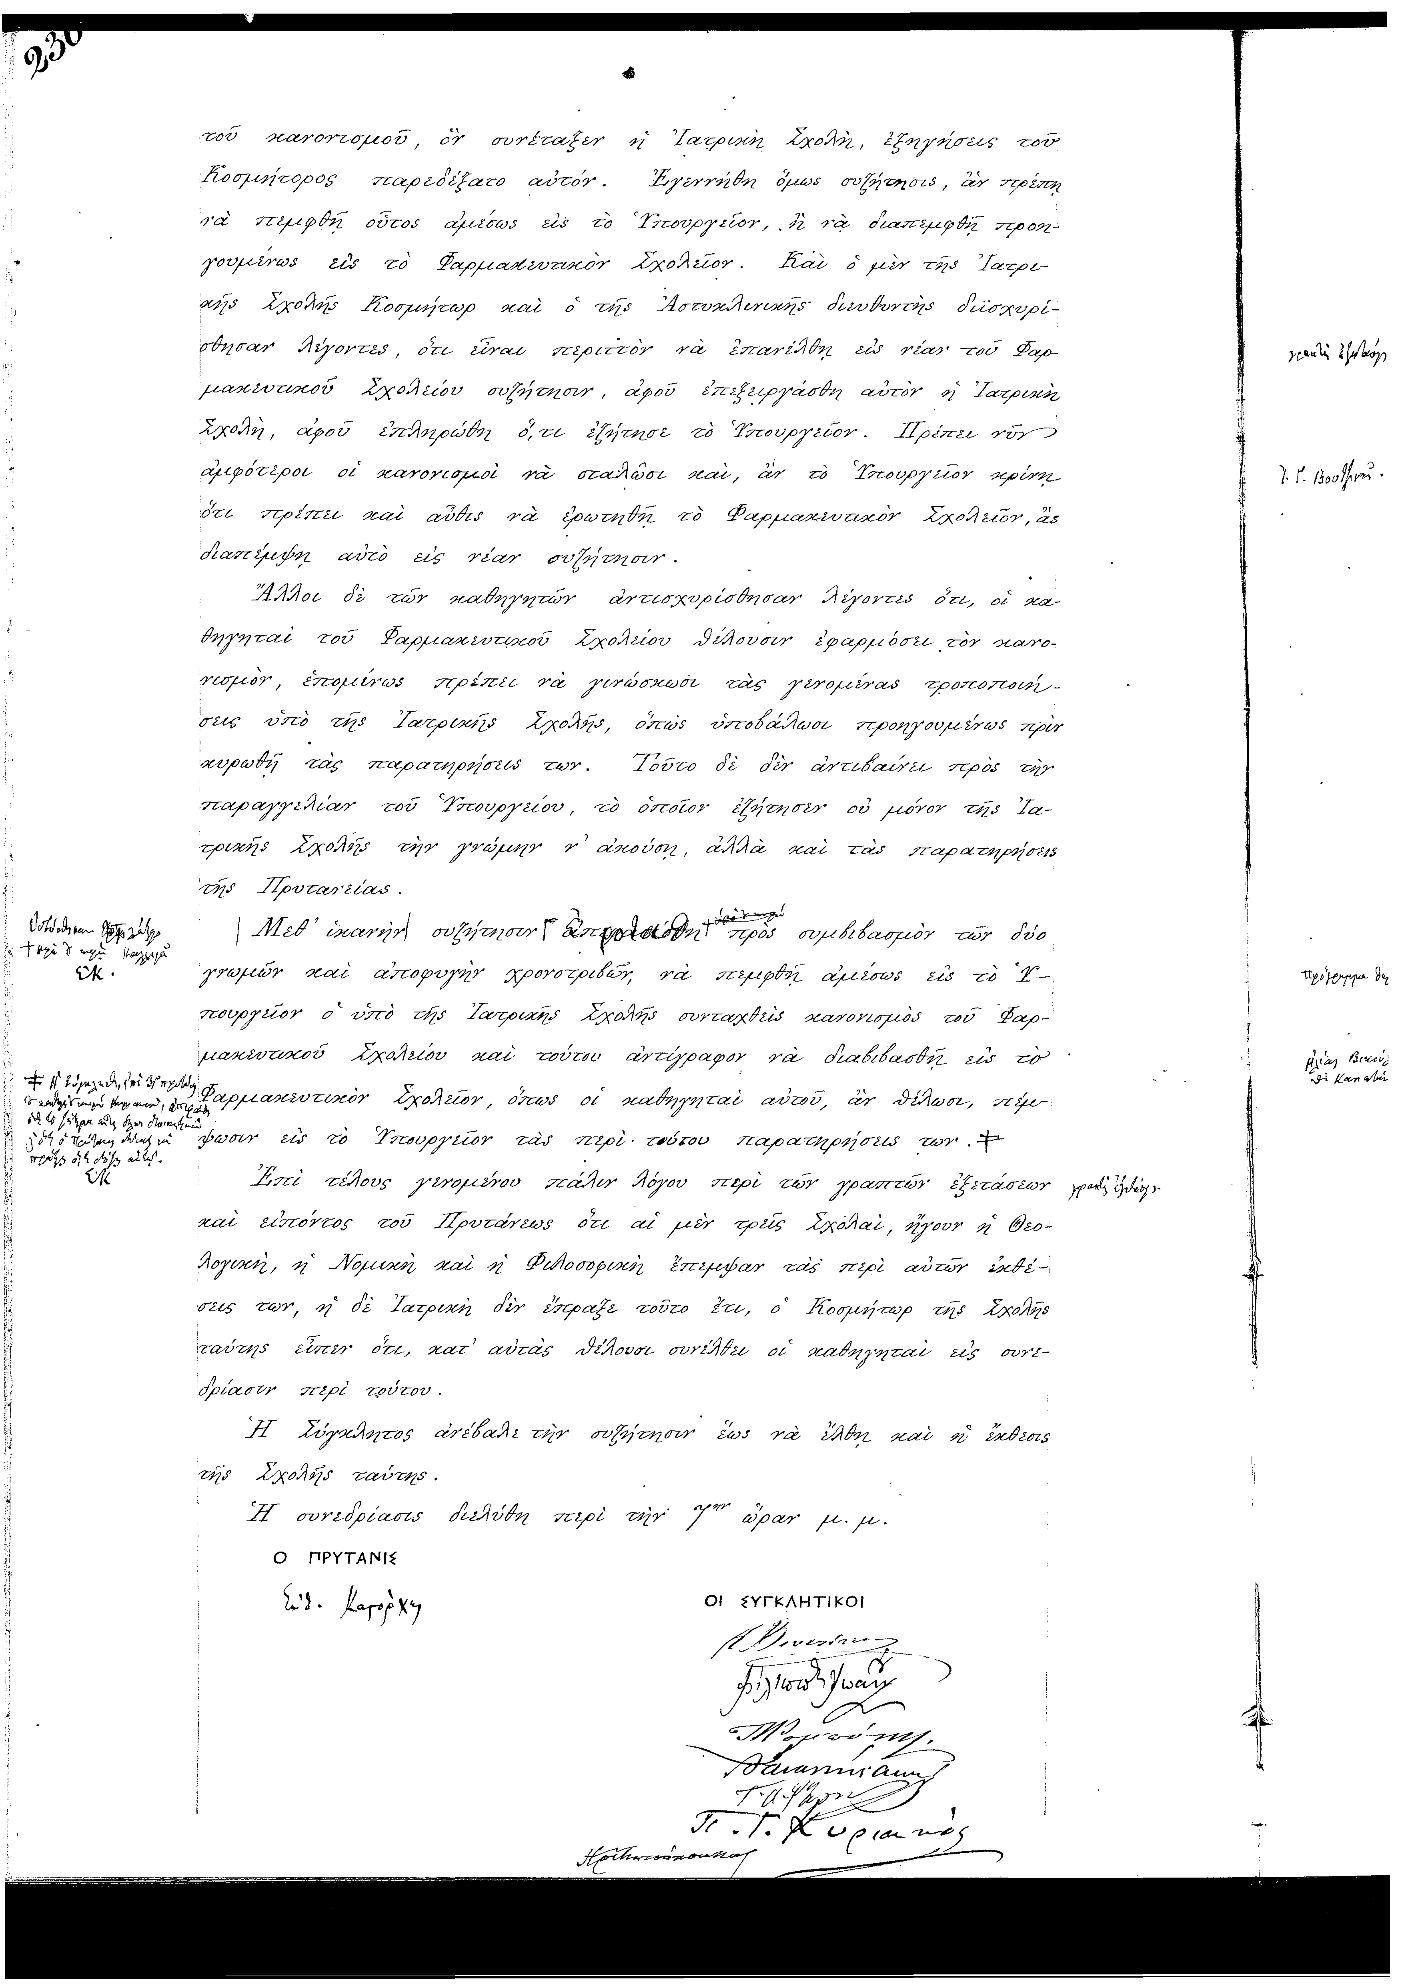 230
τοῦ κανονισμοῦ, ὃν συνέταξεν ἡ Ἰατρικὴ Σχολὴ, ἐξηγήσεις τοῦ
Κοσμήτορος παρεδέξατο αὐτόν. Ἐγεννήθη ὅμως συζήτησις, ἂν πρέπῃ
νὰ πεμφθῇ οὗτος ἀμέσως εἰς τὸ Ὑπουργεῖον, ἢ νὰ διαπεμφθῇ προη-
γουμένως εἰς τὸ Φαρμακευτικὸν Σχολεῖον. Καὶ ὁ μὲν τῆς Ἰατρι-
κῆς Σχολῆς Κοσμήτωρ καὶ ὁ τῆς Ἀστυκλινικῆς διευθυντὴς διϊσχυρί-
σθησαν λέγοντες, ὅτι εἶναι περιττὸν νὰ ἐπανέλθῃ εἰς νέαν τοῦ Φαρ-
μακευτικοῦ Σχολείου συζήτησιν, ἀφοῦ ἐπεξειργάσθη αὐτὸν ἡ Ἰατρικὴ
Σχολὴ, ἀφοῦ ἐπληρώθη ὅ,τι ἐζήτησε τὸ Ὑπουργεῖον. Πρέπει νῦν
ἀμφότεροι οἱ κανονισμοὶ νὰ σταλῶσι καὶ, ἂν τὸ Ὑπουργεῖον κρίνῃ
ὅτι πρέπει καὶ αὖθις νὰ ἐρωτηθῇ τὸ Φαρμακευτικὸν Σχολεῖον, ἂς
διαπέμψῃ αὐτὸ εἰς νέαν συζήτησιν.
Ἄλλοι δὲ τῶν καθηγητῶν ἀντισχυρίσθησαν λέγοντες ὅτι, οἱ κα-
θηγηταὶ τοῦ Φαρμακευτικοῦ Σχολείου θέλουσιν ἐφαρμόσει τὸν κανο-
νισμὸν, ἑπομένως πρέπει νὰ γινώσκωσι τὰς γενομένας τροποποιή-
σεις ὑπὸ τῆς Ἰατρικῆς Σχολῆς, ὅπως ὑποβάλωσι προηγουμένως πρὶν
κυρωθῇ τὰς παρατηρήσεις των. Τοῦτο δὲ δὲν ἀντιβαίνει πρὸς τὴν
παραγγελίαν τοῦ Ὑπουργείου, τὸ ὁποῖον ἐζήτησεν οὐ μόνον τῆς Ἰα-
τρικῆς Σχολῆς τὴν γνώμην ν' ἀκούσῃ, ἀλλὰ καὶ τὰς παρατηρήσεις
τῆς Πρυτανείας.
Μεθ' ἱκανὴν συζήτησιν πρὸς συμβιβασμὸν τῶν δύο
γνωμῶν καὶ ἀποφυγὴν χρονοτριβῶν, νὰ πεμφθῇ ἀμέσως εἰς τὸ Ὑ-
πουργεῖον ὁ ὑπὸ τῆς Ἰατρικῆς Σχολῆς συνταχθεὶς κανονισμὸς τοῦ Φαρ-
μακευτικοῦ Σχολείου καὶ τούτου ἀντίγραφον νὰ διαβιβασθῇ εἰς τὸ
Φαρμακευτικὸν Σχολεῖον, ὅπως οἱ καθηγηταὶ αὐτοῦ, ἂν θέλωσι, πέμ-
ψωσιν εἰς τὸ Ὑπουργεῖον τὰς περὶ τούτου παρατηρήσεις των.
Ἐπὶ τέλους γενομένου πάλιν λόγου περὶ τῶν γραπτῶν ἐξετάσεων
καὶ εἰπόντος τοῦ Πρυτάνεως ὅτι αἱ μὲν τρεῖς Σχολαὶ, ἤγουν ἡ Θεο-
λογικὴ, ἡ Νομικὴ καὶ ἡ Φιλοσοφικὴ ἔπεμψαν τὰς περὶ αὐτῶν ἐκθέ-
σεις των, ἡ δὲ Ἰατρικὴ δὲν ἔπραξε τοῦτο ἔτι, ὁ Κοσμήτωρ τῆς Σχολῆς
ταύτης εἶπεν ὅτι, κατ' αὐτὰς θέλουσι συνέλθει οἱ καθηγηταὶ εἰς συνε-
δρίασιν περὶ τούτου.
Ἡ Σύγκλητος ἀνέβαλε τὴν συζήτησιν ἕως νὰ ἔλθῃ καὶ ἡ ἔκθεσις
τῆς Σχολῆς ταύτης.
Ἡ συνεδρίασις διελύθη περὶ τὴν 7ην ὥραν μ. μ.
Ο ΠΡΥΤΑΝΙΣ
Εὐθ. Καστόρχης
ΟΙ ΣΥΓΚΛΗΤΙΚΟΙ
Π. Γ. Κυριακός